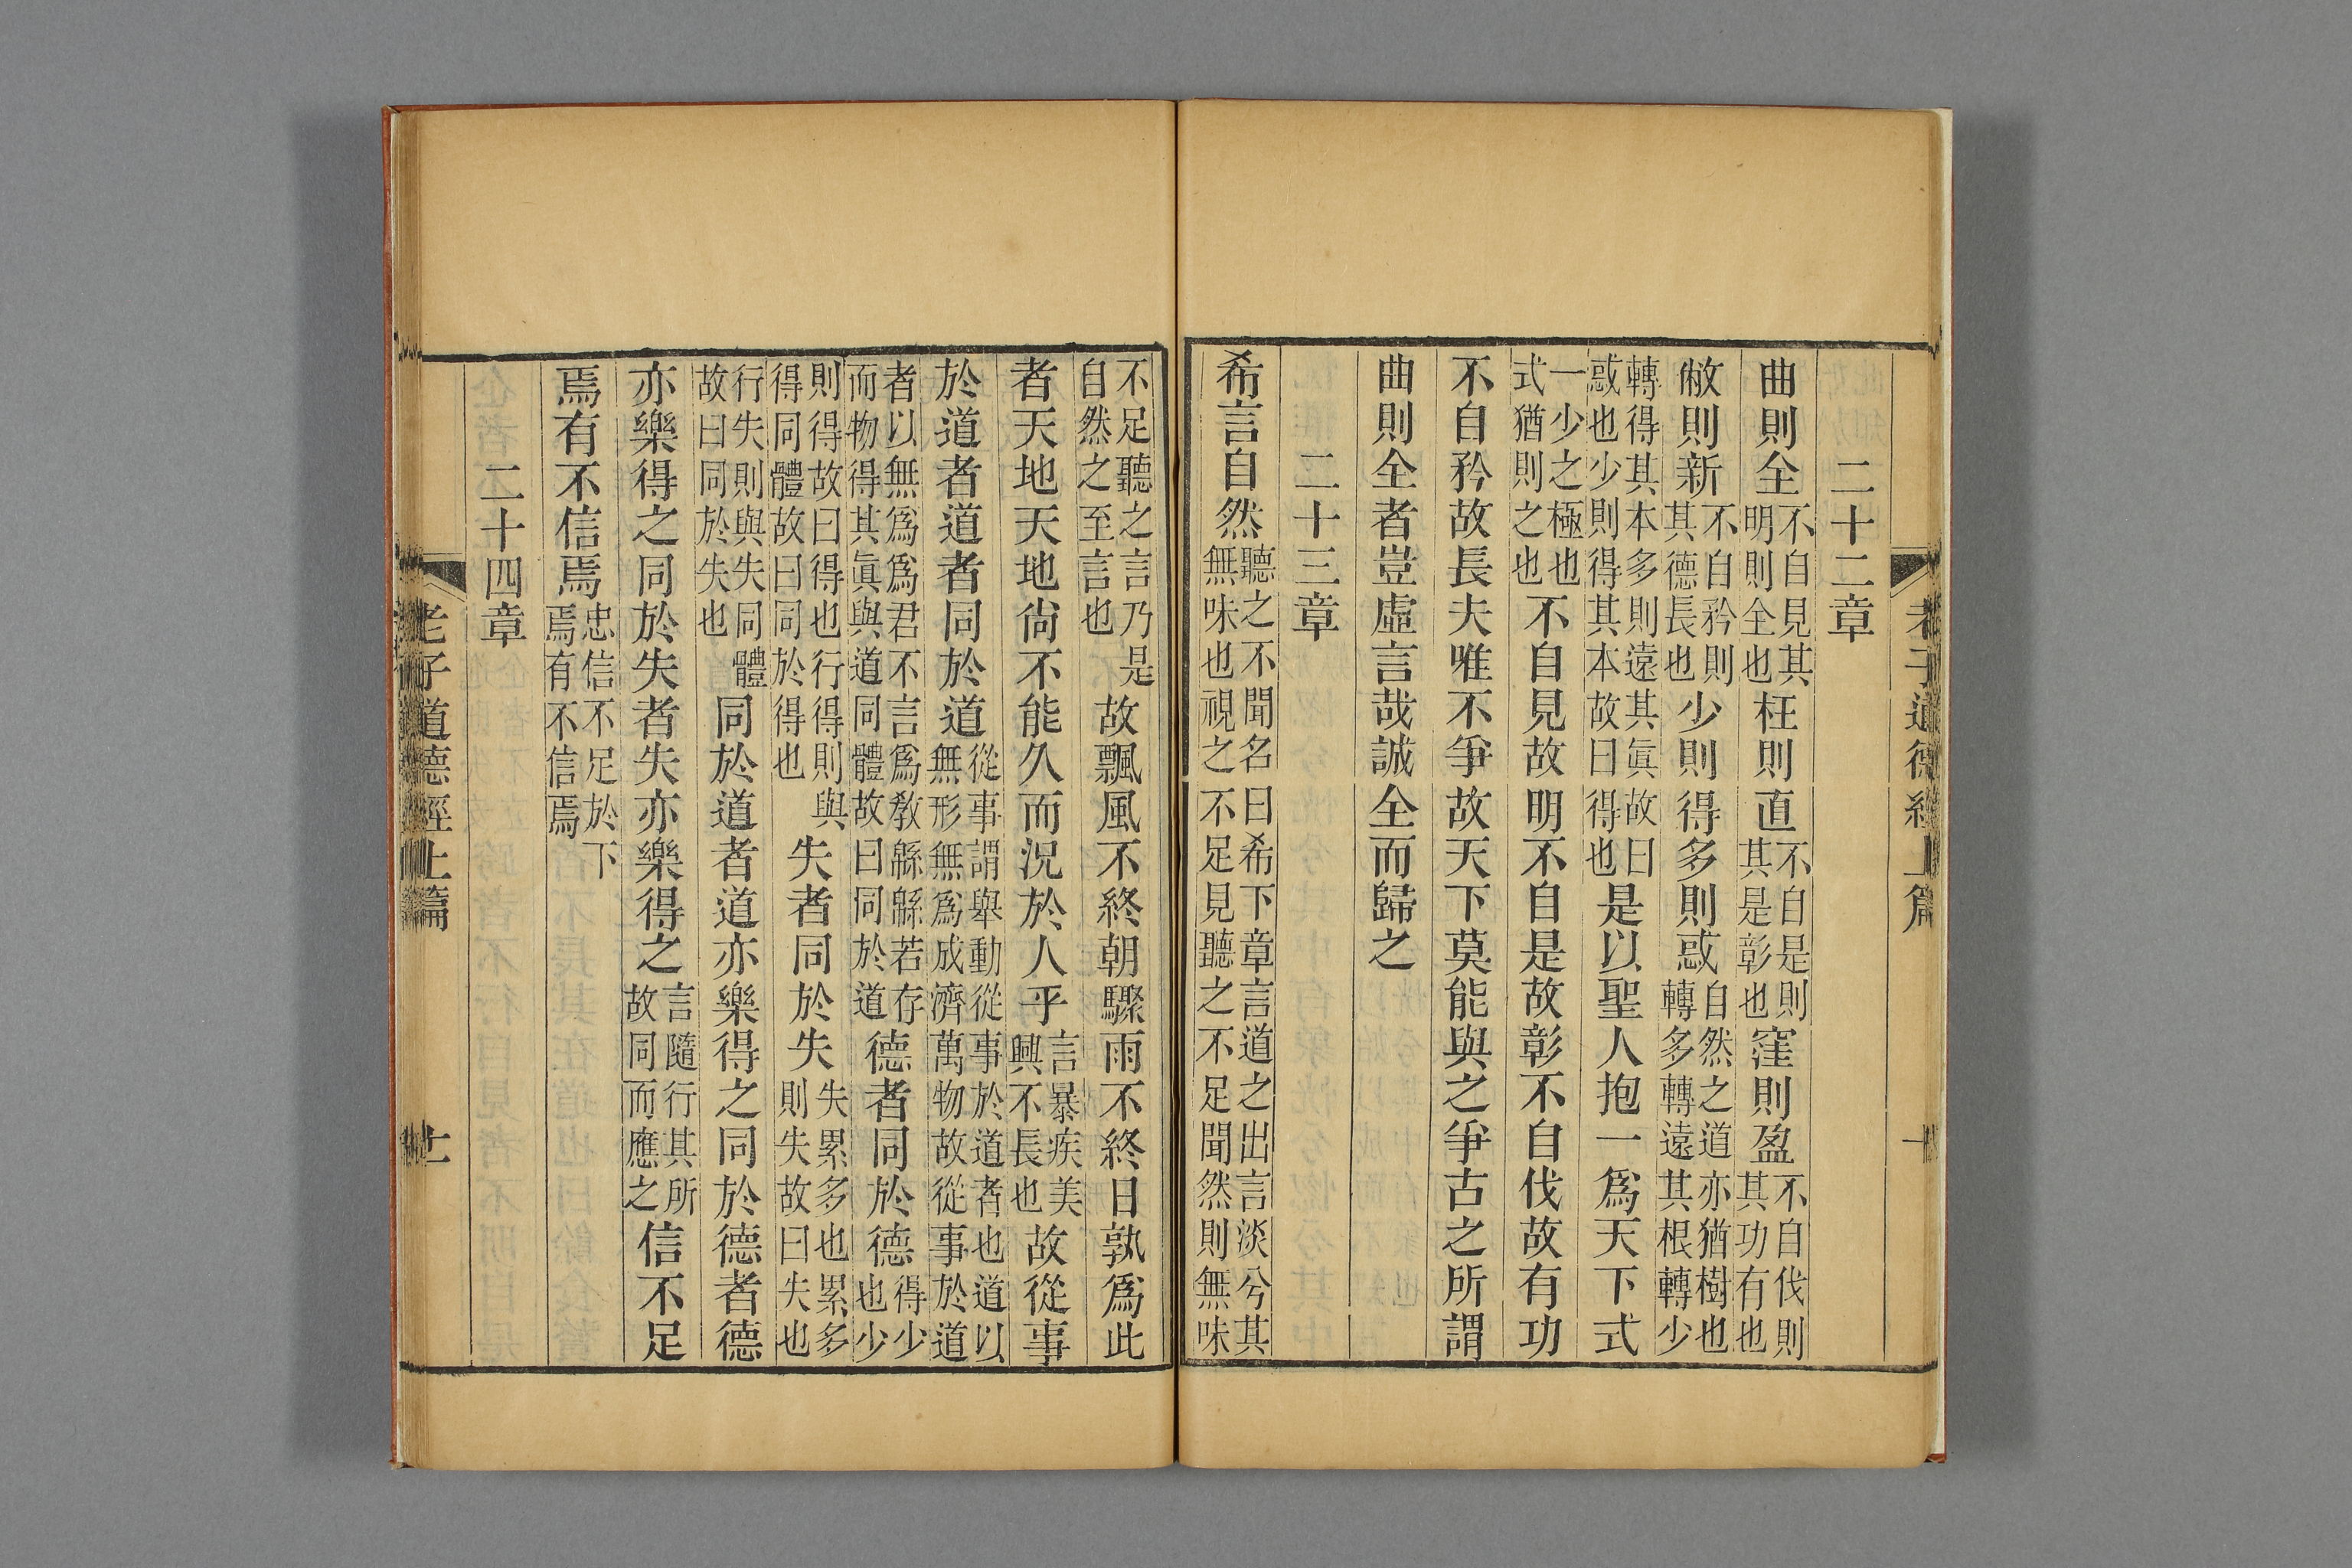 老子道德經上篇
二十二章
曲則全不自見其明則全也枉則直不自是則其是彰也窪則盈不自伐則其功有也
敝則新不自矜則其德長也少則得多則惑自然之道亦猶樹也轉多轉遠其根轉少
轉得其本多則遠其眞故曰惑也少則得其本故曰得也是以聖人抱一爲天下式
一少之極也式猶則之也不自見故明不自是故彰不自伐故有功
不自矜故長夫唯不爭故天下莫能與之爭古之所謂
曲則全者豈虛言哉誠全而歸之
二十三章
希言自然聽之不聞名曰希下章言道之出言淡兮其無味也視之不足見聽之不足聞然則無味
不足聽之言乃是自然之至言也故飄風不終朝驟雨不終日孰爲此
者天地天地尙不能久而況於人乎言暴疾美興不長也故從事
於道者道者同於道從事謂舉動從事於道者也道以無形無爲成濟萬物故從事於道
者以無爲爲君不言爲敎緜緜若存而物得其眞與道同體故曰同於道德者同於德得少也少
則得故曰得也行得則與得同體故曰同於得也失者同於失失累多也累多則失故曰失也
行失則與失同體故曰同於失也同於道者道亦樂得之同於德者德
亦樂得之同於失者失亦樂得之言隨行其所故同而應之信不足
焉有不信焉忠信不足於下焉有不信焉
二十四章
老子道德經上篇
十一